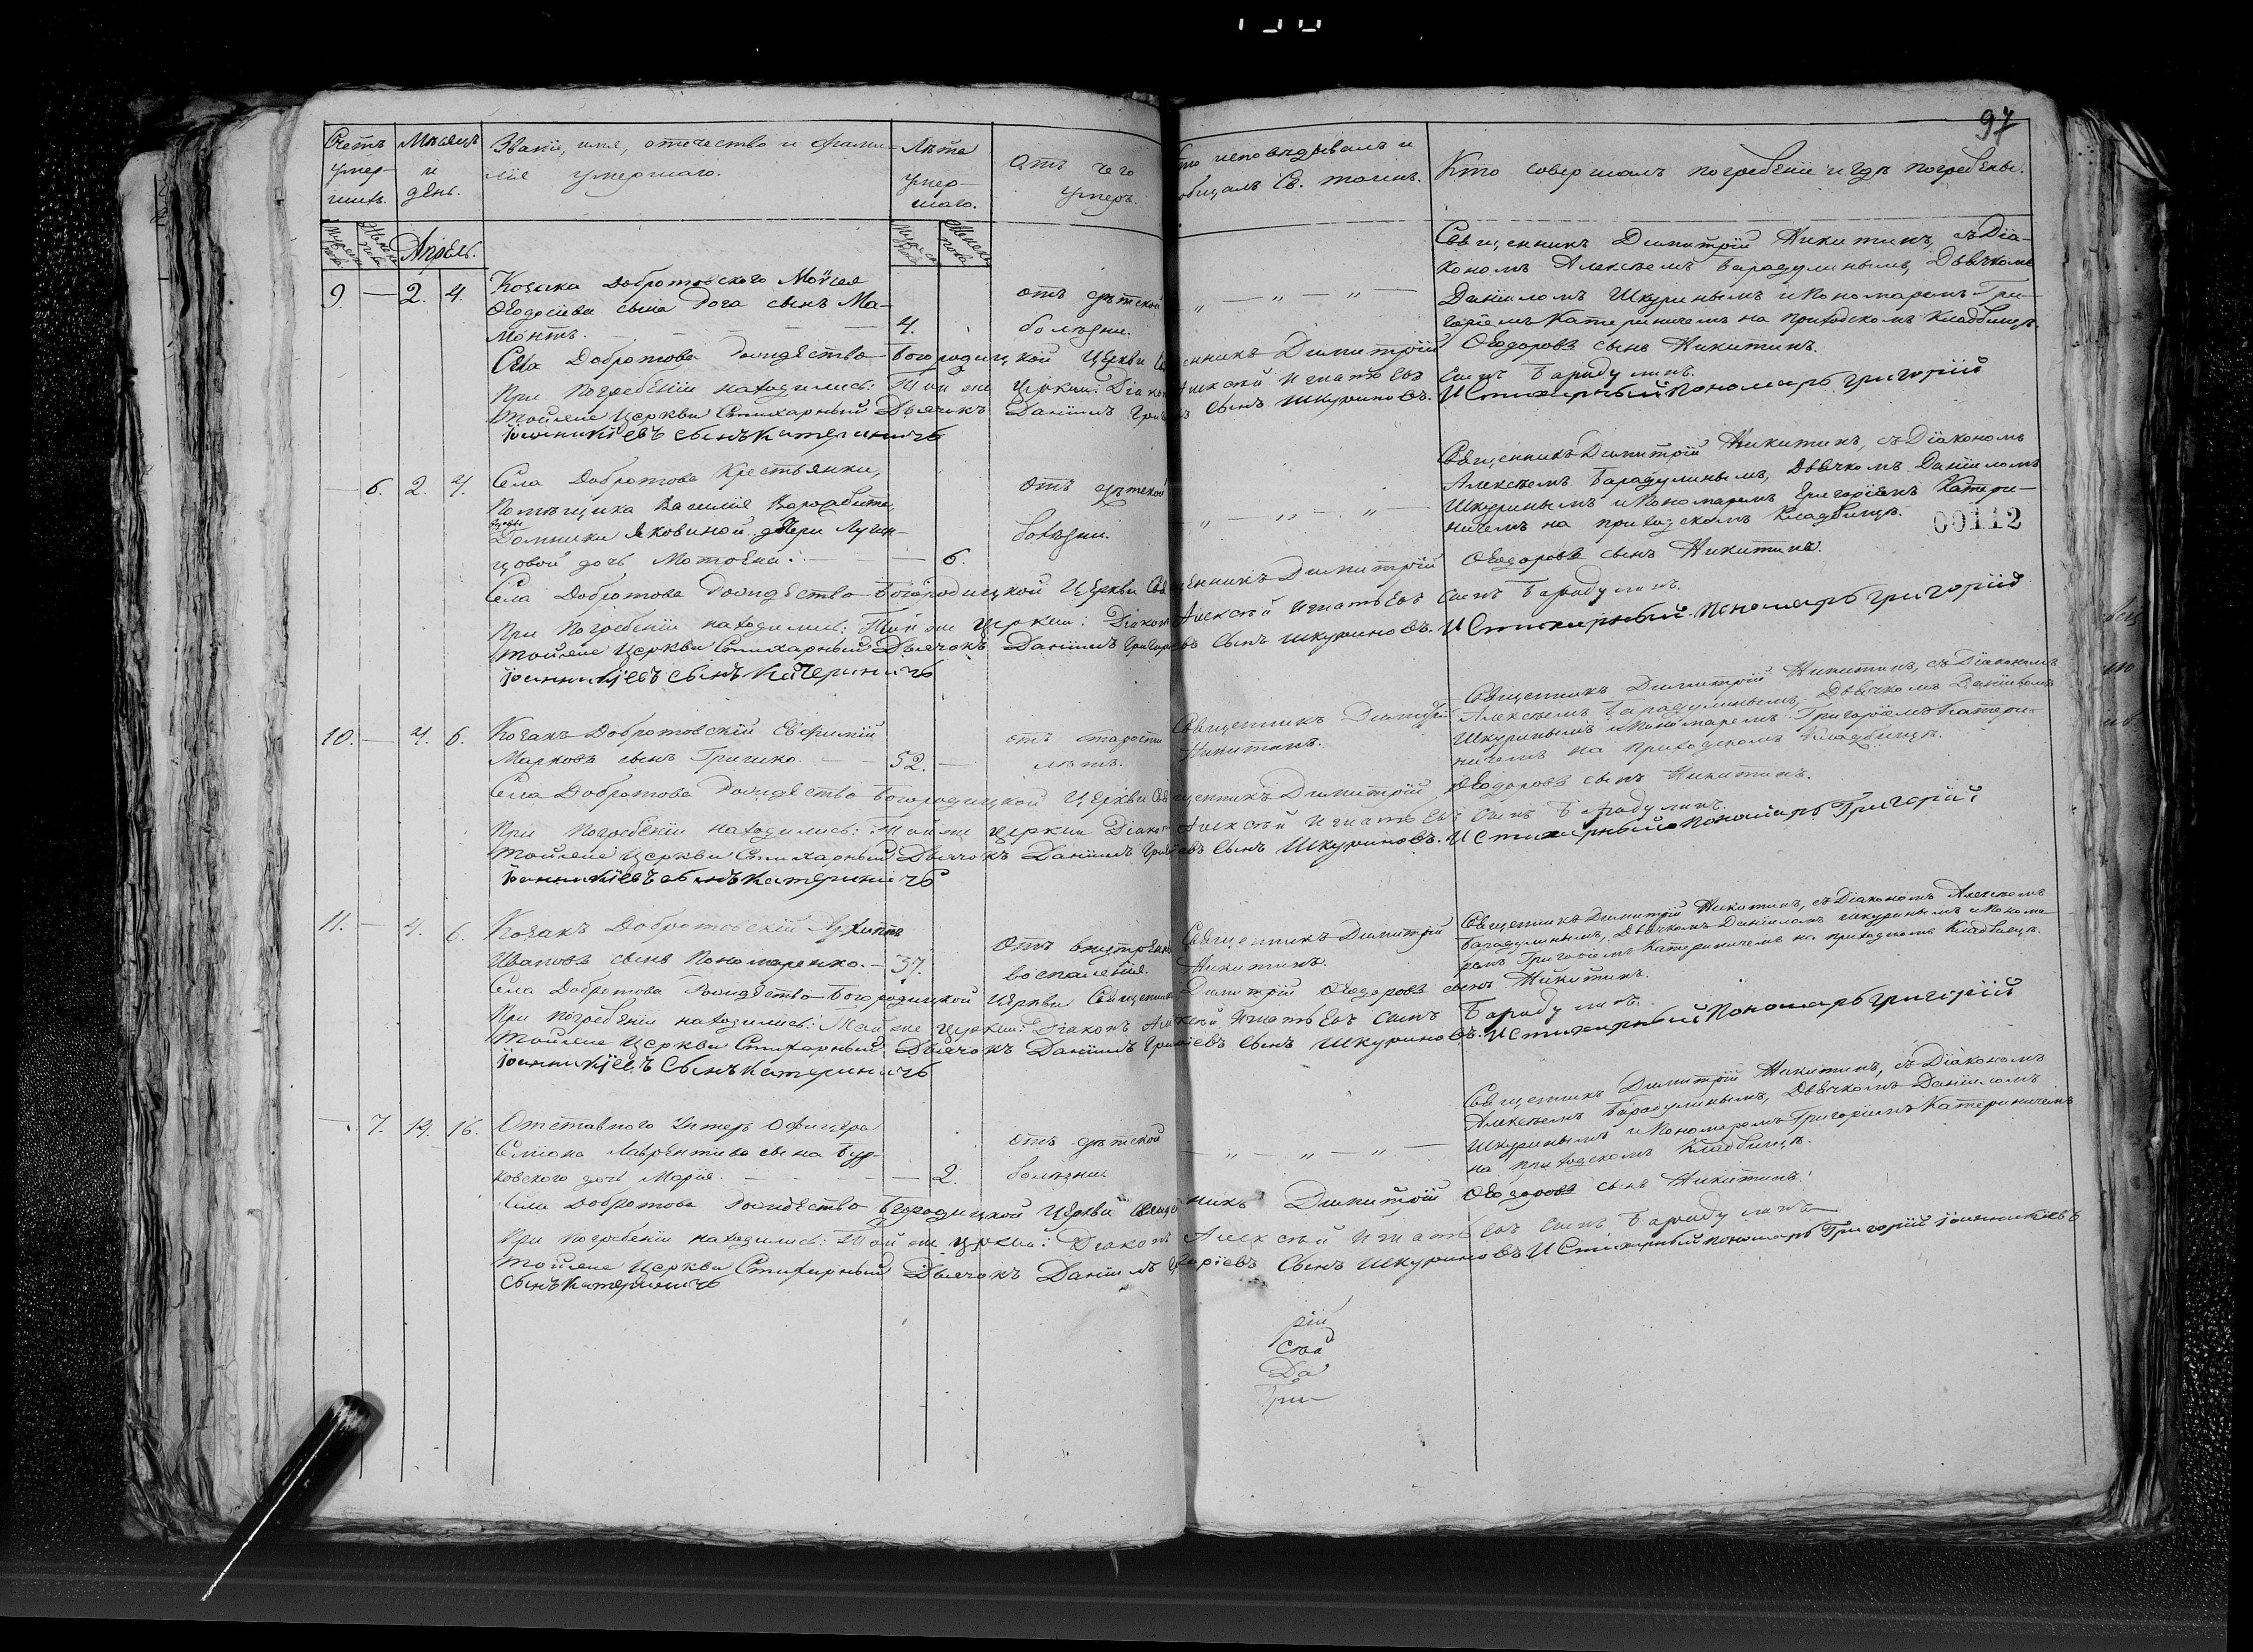 97
Счетъ умершихъ.
Мѣсяцъ и день.
Званіе, имя, отечество и фамилія умершаго.
Лѣта умершаго.
Отъ чего умеръ.
Кто исповѣдывалъ и пріобщалъ Св. тайнъ.
Кто совершалъ погребеніе и гдѣ погребены.
Апрѣль.
9. — 2. 4.
Козака Добротовского Моѵсея
Ѳеодосіева сына Рога сынъ Ма-
монтъ. — 4.
отъ дѣтской
болѣзни.
" — " — " —
Священникъ Димитрій Никитинъ, съ Діа-
кономъ Алексѣемъ Барадулинымъ, Дьячкомъ
Даніиломъ Шкуринымъ и Пономаремъ Гри-
горіемъ Катериничемъ на приходскомъ кладбищѣ.
Села Добротова Рождество-Богородицкой Церкви Священникъ Димитрій Ѳеодоровъ сынъ Никитинъ.
При погребеніи находились: Той же церкви: Діаконъ Алексѣй Игнатьевъ сынъ Барадулинъ.
Той же Церкви Стихарный Дьячокъ Даніилъ Григорьевъ Сынъ Шкуриновъ. И Стихарный Пономарь Григорій
Іоанникіевъ сынъ Катериничь
— 6. 2. 4.
Села Добротова Крестьянки,
Помѣщика Василія
вдовы
Домники Яковиной дочери Лучи-
цовой дочь Мотрона. — 6.
Отъ дѣтской
болѣзни.
— " — " — " —
Священникъ Димитрій Никитинъ, съ Діакономъ
Алексѣемъ Барадулинымъ, Дьячкомъ Даніиломъ
Шкуринымъ и Пономаремъ Григоріемъ Катери-
ничемъ на приходскомъ кладбищѣ.
00112
Села Добротова Рождество-Богородицкой Церкви Священникъ Димитрій Ѳеодоровъ сынъ Никитинъ.
При погребеніи находились: Той же церкви: Діаконъ Алексѣй Игнатьевъ сынъ Барадулинъ.
Той же Церкви Стихарный Дьячокъ Даніилъ Григорьевъ Сынъ Шкуриновъ. И Стихарный Пономарь Григорій
Іоанникіевъ сынъ Катериничь
10. — 4. 6.
Козакъ Добротовскій Евфимій
Марковъ сынъ Гришко. — 52. —
отъ старости
лѣтъ.
Священникъ Димитрій
Никитинъ.
Священникъ Димитрій Никитинъ, съ Діакономъ
Алексѣемъ Барадулинымъ, Дьячкомъ Даніиломъ
Шкуринымъ и Пономаремъ Григоріемъ Катери-
ничемъ на приходскомъ кладбищѣ.
Села Добротова Рождество-Богородицкой Церкви Священникъ Димитрій Ѳеодоровъ сынъ Никитинъ.
При погребеніи находились: Той же церкви Діаконъ Алексѣй Игнатьевъ сынъ Барадулинъ.
Той же Церкви Стихарный Дьячокъ Даніилъ Григорьевъ Сынъ Шкуриновъ. И Стихарный Пономарь Григорій
Іоанникіевъ сынъ Катериничь
11. — 4. 6.
Козакъ Добротовскій Архиппъ
Ивановъ сынъ Пономаренко. — 37.
Отъ внутренняго
воспаленія.
Священникъ Димитрій
Никитинъ.
Священникъ Димитрій Никитинъ, съ Діакономъ Алексѣемъ
Барадулинымъ, Дьячкомъ Даніиломъ Шкуринымъ и Понома-
ремъ Григоріемъ Катериничемъ на приходскомъ кладбищѣ.
Села Добротова Рождество-Богородицкой Церкви Священникъ Димитрій Ѳеодоровъ сынъ Никитинъ.
При погребеніи находились: Той же церкви: Діаконъ Алексѣй Игнатьевъ сынъ Барадулинъ.
Той же Церкви Стихарный Дьячокъ Даніилъ Григорьевъ Сынъ Шкуриновъ. И Стихарный Пономарь Григорій
Іоанникіевъ Сынъ Катериничь
— 7. 14. 16.
Отставного Унтеръ Офицера
Симіона Лаврентіева сына Бур-
ковского дочь Марія. — 2.
отъ дѣтской
болѣзни.
— " — " — " —
Священникъ Димитрій Никитинъ, съ Діакономъ
Алексѣемъ Барадулинымъ, Дьячкомъ Даніиломъ
Шкуринымъ и Пономаремъ Григоріемъ Катериничемъ
на приходскомъ кладбищѣ.
Села Добротова Рождество-Богородицкой Церкви Священникъ Димитрій Ѳеодоровъ сынъ Никитинъ.
При погребеніи находились: Той же церкви: Діаконъ Алексѣй Игнатьевъ сынъ Барадулинъ
Той же Церкви Стихарный Дьячокъ Даніилъ Григоріевъ Сынъ Шкуриновъ И Стихарный пономарь Григорій Іоанникіевъ
Сынъ Катериничь
рій
Да
Гри-